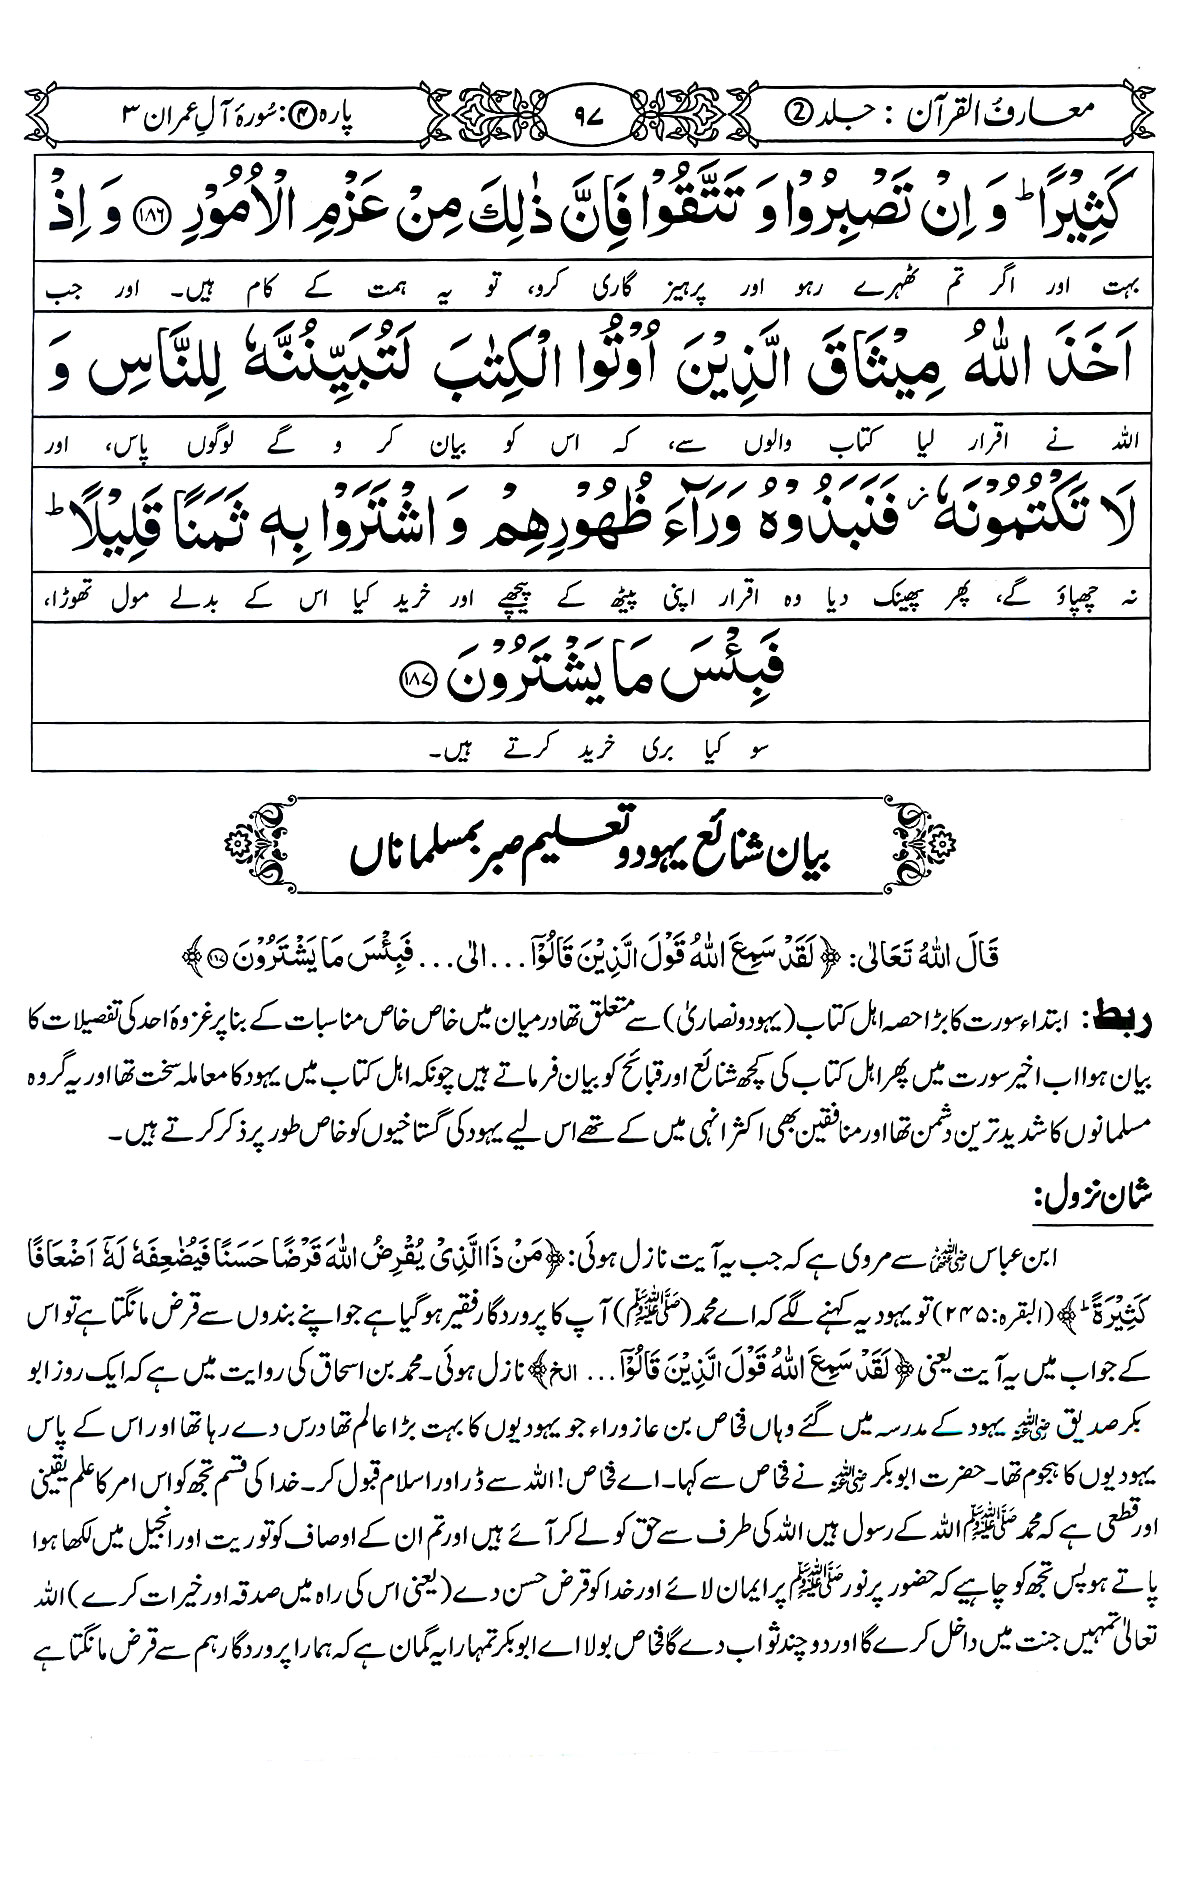 معارف القرآن : جلد ②
۹۷
پارہ ④: سُورۂ آلِ عمران ۳
كَثِيْرًا ؕ وَ اِنْ تَصْبِرُوْا وَ تَتَّقُوْا فَاِنَّ ذٰلِكَ مِنْ عَزْمِ الْاُمُوْرِ ﴿۱۸۶﴾ وَ اِذْ
بہت اور اگر تم ٹھہرے رہو اور پرہیز گاری کرو، تو یہ ہمت کے کام ہیں۔ اور جب
اَخَذَ اللّٰهُ مِيْثَاقَ الَّذِيْنَ اُوْتُوا الْكِتٰبَ لَتُبَيِّنُنَّهٗ لِلنَّاسِ وَ
اللہ نے اقرار لیا کتاب والوں سے، کہ اس کو بیان کر و گے لوگوں پاس، اور
لَا تَكْتُمُوْنَهٗ ؗ فَنَبَذُوْهُ وَرَآءَ ظُهُوْرِهِمْ وَ اشْتَرَوْا بِهٖ ثَمَنًا قَلِيْلًا ؕ
نہ چھپاؤ گے، پھر پھینک دیا وہ اقرار اپنی پیٹھ کے پیچھے اور خرید کیا اس کے بدلے مول تھوڑا،
فَبِئْسَ مَا يَشْتَرُوْنَ ﴿۱۸۷﴾
سو کیا بری خرید کرتے ہیں۔
بیان شنائع یہود و تعلیم صبر بمسلماناں
قَالَ اللّٰهُ تَعَالٰى: ﴿لَقَدْ سَمِعَ اللّٰهُ قَوْلَ الَّذِيْنَ قَالُوْٓا ... الى ... فَبِئْسَ مَا يَشْتَرُوْنَ﴾
ربط: ابتداء سورت کا بڑا حصہ اہل کتاب (یہود و نصاریٰ) سے متعلق تھا درمیان میں خاص خاص مناسبات کے بنا پر غزوۂ احد کی تفصیلات کا
بیان ہوا اب اخیر سورت میں پھر اہل کتاب کی کچھ شنائع اور قبائح کو بیان فرماتے ہیں چونکہ اہل کتاب میں یہود کا معاملہ سخت تھا اور یہ گروہ
مسلمانوں کا شدید ترین دشمن تھا اور منافقین بھی اکثر انہی میں کے تھے اس لیے یہود کی گستاخیوں کو خاص طور پر ذکر کرتے ہیں۔
شان نزول:
ابن عباس رضی اللہ عنہما سے مروی ہے کہ جب یہ آیت نازل ہوئی: ﴿مَنْ ذَا الَّذِيْ يُقْرِضُ اللّٰهَ قَرْضًا حَسَنًا فَيُضٰعِفَهٗ لَهٗٓ اَضْعَافًا
كَثِيْرَةً ؕ﴾ (البقرہ: ۲۴۵) تو یہود یہ کہنے لگے کہ اے محمد (ﷺ) آپ کا پروردگار فقیر ہو گیا ہے جو اپنے بندوں سے قرض مانگتا ہے تو اس
کے جواب میں یہ آیت یعنی ﴿لَقَدْ سَمِعَ اللّٰهُ قَوْلَ الَّذِيْنَ قَالُوْٓا ... الخ﴾ نازل ہوئی۔ محمد بن اسحاق کی روایت میں ہے کہ ایک روز ابو
بکر صدیق رضی اللہ عنہ یہود کے مدرسہ میں گئے وہاں فنحاص بن عازوراء جو یہودیوں کا بہت بڑا عالم تھا درس دے رہا تھا اور اس کے پاس
یہودیوں کا ہجوم تھا۔ حضرت ابوبکر رضی اللہ عنہ نے فنحاص سے کہا۔ اے فنحاص! اللہ سے ڈر اور اسلام قبول کر۔ خدا کی قسم تجھ کو اس امر کا علم یقینی
اور قطعی ہے کہ محمد ﷺ اللہ کے رسول ہیں اللہ کی طرف سے حق کو لے کر آئے ہیں اور تم ان کے اوصاف کو توریت اور انجیل میں لکھا ہوا
پاتے ہو پس تجھ کو چاہیے کہ حضور پر نور ﷺ پر ایمان لائے اور خدا کو قرض حسن دے (یعنی اس کی راہ میں صدقہ اور خیرات کرے) اللہ
تعالیٰ تمہیں جنت میں داخل کرے گا اور دو چند ثواب دے گا فنحاص بولا اے ابوبکر تمہارا یہ گمان ہے کہ ہمارا پروردگار ہم سے قرض مانگتا ہے